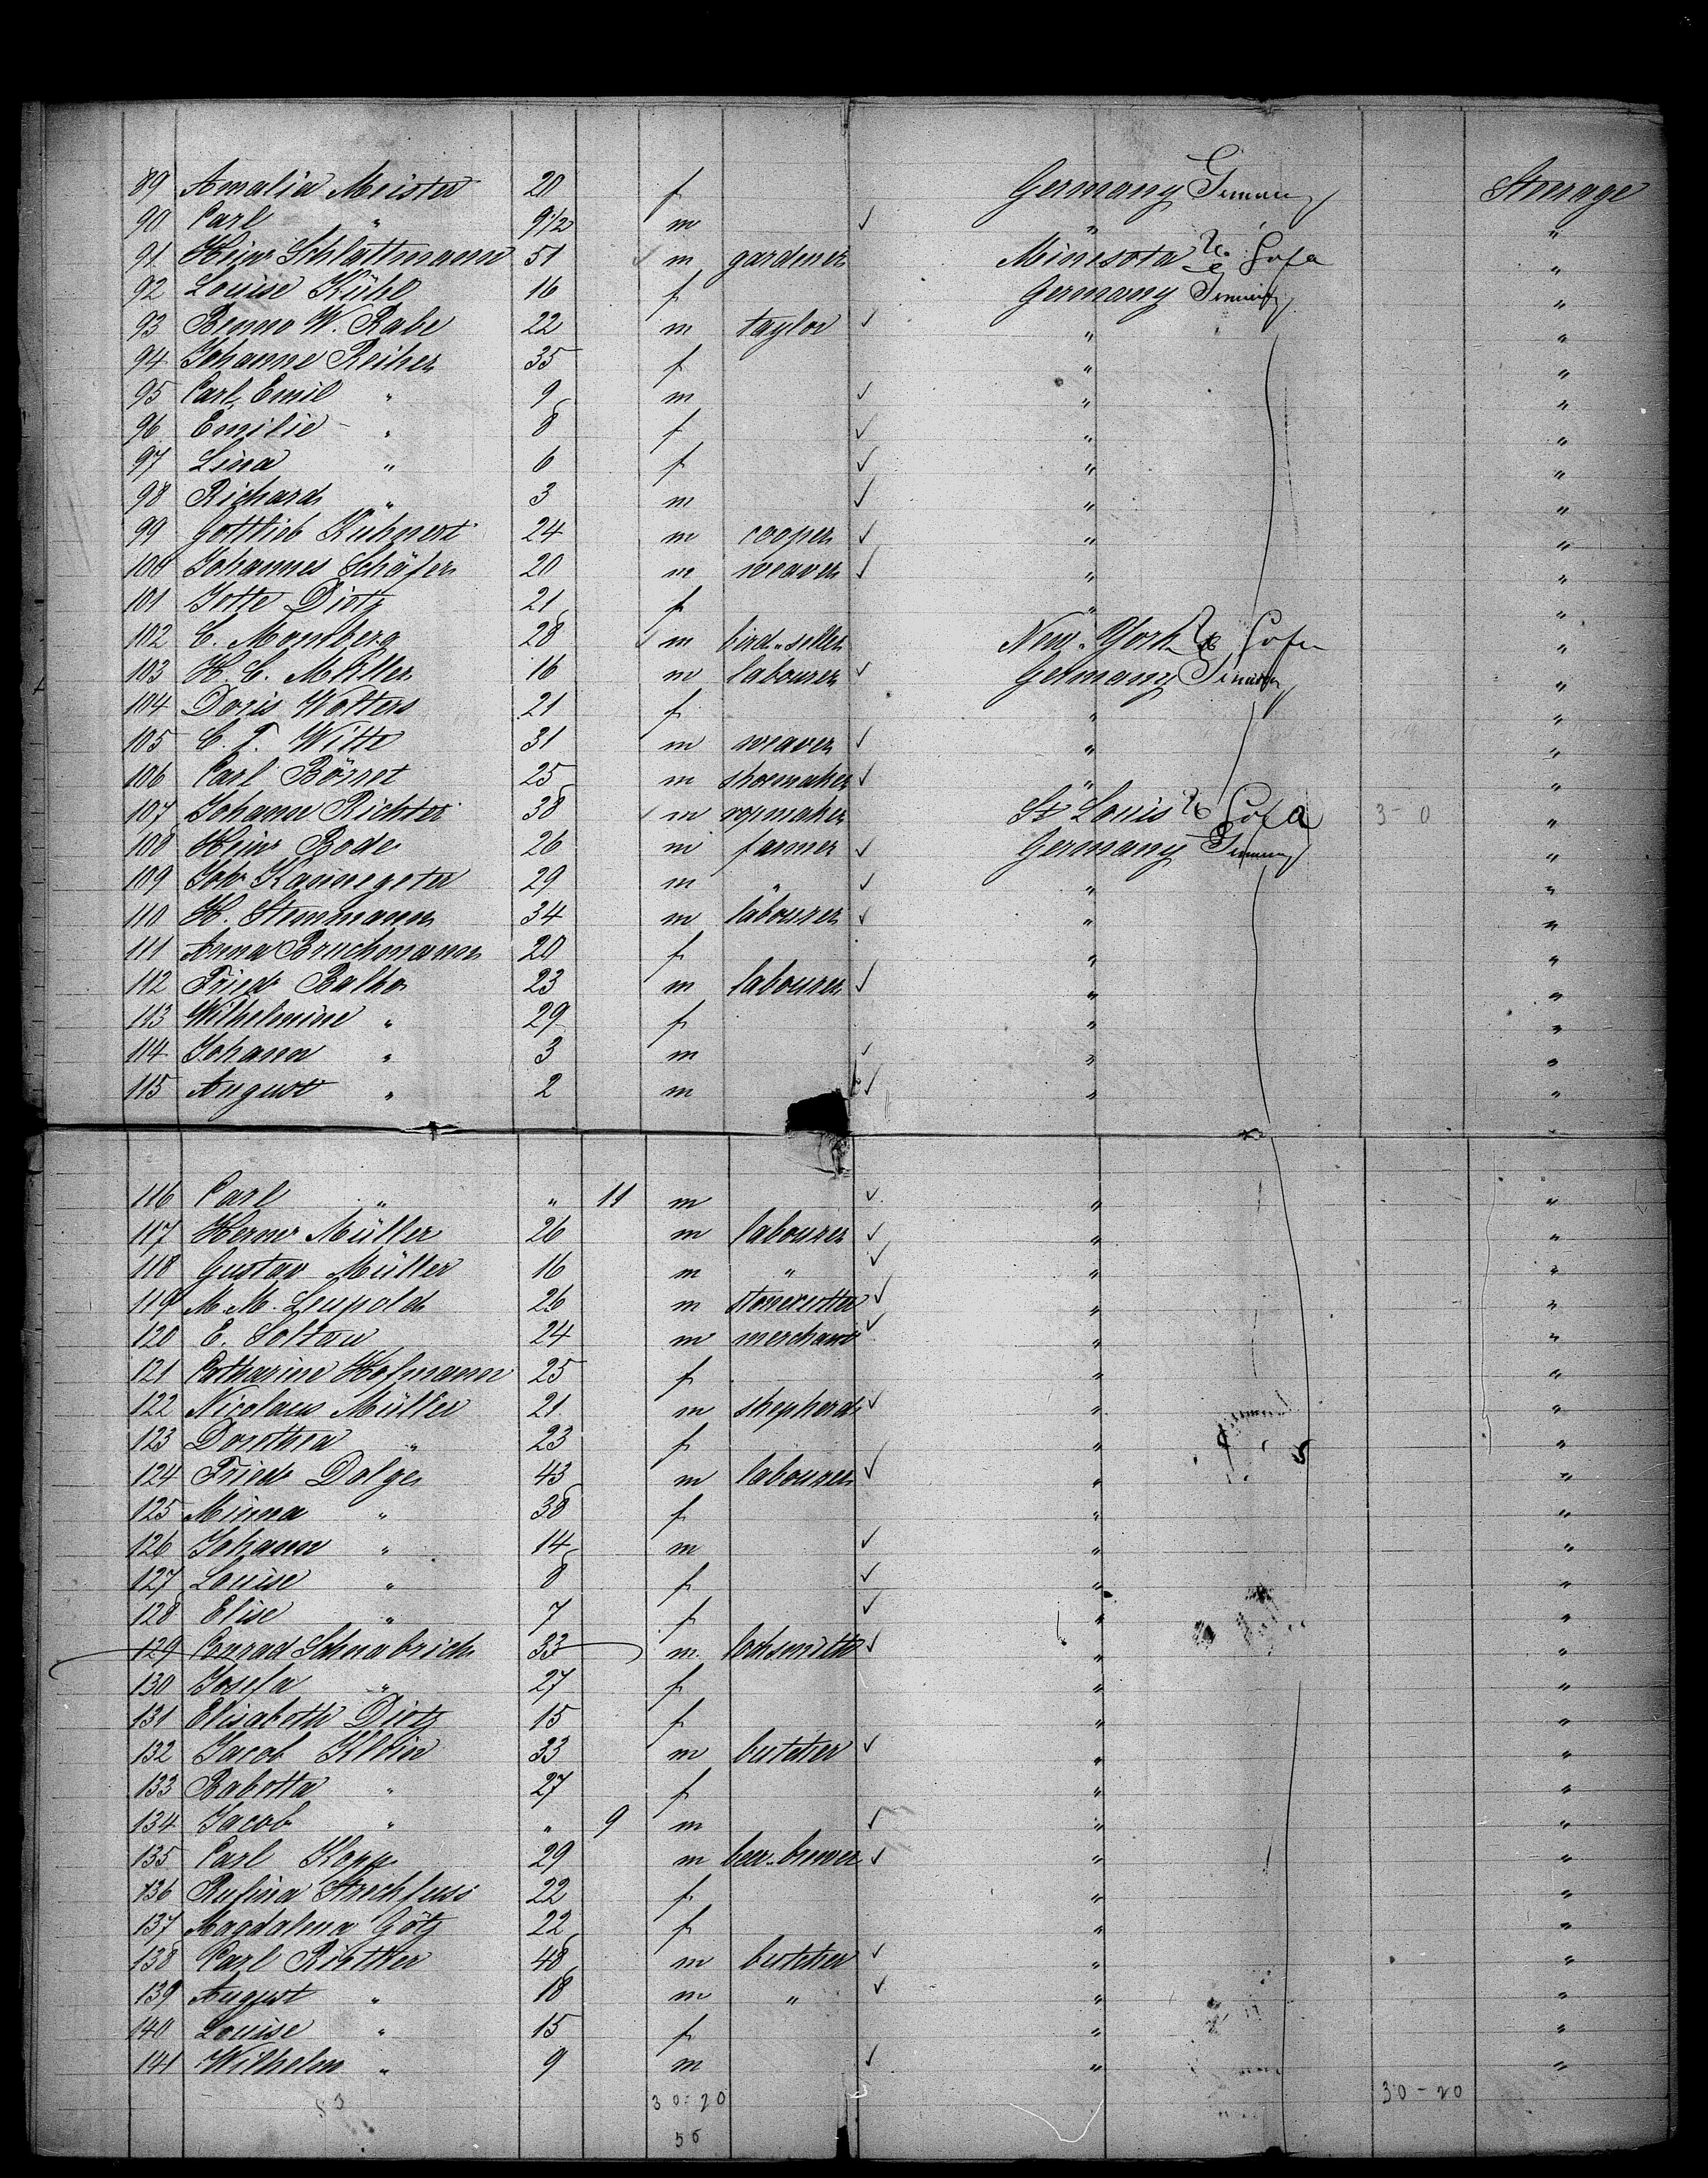 89 Amalia Meister 20 f Germany Steerage
90 Carl " 9 1/2 m " "
91 Heinr Schlattmann 51 m gardener Minesota "
92 Louise Kühl 16 f Germany "
93 Benno W. Rabe 22 m taylor " "
94 Johanne Reiher 35 f " "
95 Carl Emil " 9 m " "
96 Emilie " 8 f " "
97 Lina " 6 f " "
98 Richard " 3 m " "
99 Gottlieb Kühnert 24 m cooper " "
100 Johannes Schäfer 20 m weaver " "
101 Jette Dietz 21 f " "
102 C. Momberg 28 m bird-seller New-York "
103 H. C. Müller 16 m labourer Germany "
104 Doris Wolters 21 f " "
105 C. T. Witte 31 m weaver " "
106 Carl Börret 25 m shoemaker " "
107 Johann Richter 38 m ropmaker St Louis 3-0 "
108 Heinr Bode 26 m farmer Germany "
109 Joh Kannegeter 29 m " " "
110 H. Stemmann 34 m labourer " "
111 Anna Bruchmann 20 f " "
112 Friedr Balke 23 m labourer " "
113 Wilhelmine " 29 f " "
114 Johann " 3 m " "
115 August " 2 m " "
116 Carl " " 11 m " "
117 Herm Müller 26 m labourer " "
118 Gustav Müller 16 m " " "
119 M. M. Leupold 26 m stonecutter " "
120 E. Soltau 24 m merchant " "
121 Catharine Hofmann 25 f " "
122 Nicolaus Müller 21 m shepherd " "
123 Dorothea " 23 f " "
124 Friedr Dolge 43 m labourer " "
125 Minna " 38 f " "
126 Johann " 14 m " "
127 Louise " 8 f " "
128 Elise " 7 f " "
129 Conrad Schnabrich 33 m. locksmith " "
130 Josefa " 27 f " "
131 Elisabeth Dietz 15 f " "
132 Jacob Klein 33 m butcher " "
133 Babetta " 27 f " "
134 Jacob " " 9 m " "
135 Carl Kopp 29 m beer-brewer " "
136 Rufina Strechfuss 22 f " "
137 Magdalena Götz 22 f " "
138 Carl Rietther 48 m butcher " "
139 August " 18 m " " "
140 Louise " 15 f " "
141 Wilhelm " 9 m " "
53 30-20 30-20
56